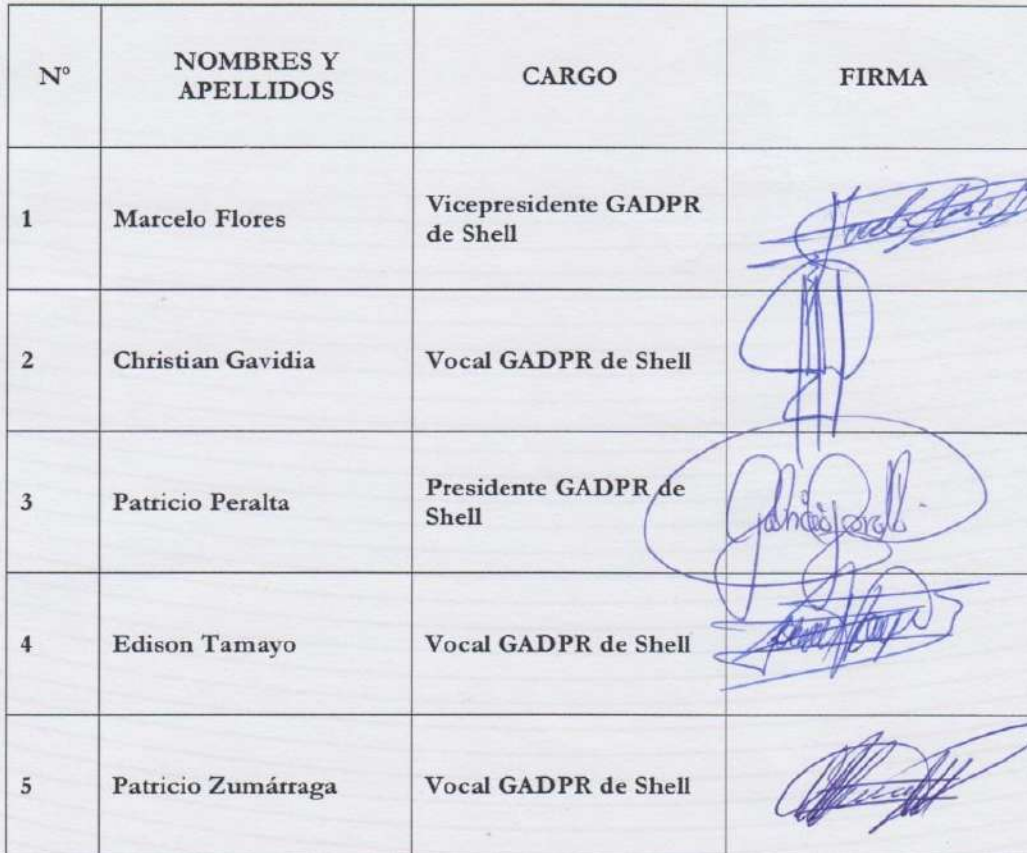 Nº
NOMBRES Y
APELLIDOS
CARGO
FIRMA
1
Marcelo Flores
Vicepresidente GADPR
de Shell
2
Christian Gavidia
Vocal GADPR de Shell
3
Patricio Peralta
Presidente GADPR de
Shell
4
Edison Tamayo
Vocal GADPR de Shell
5
Patricio Zumárraga
Vocal GADPR de Shell